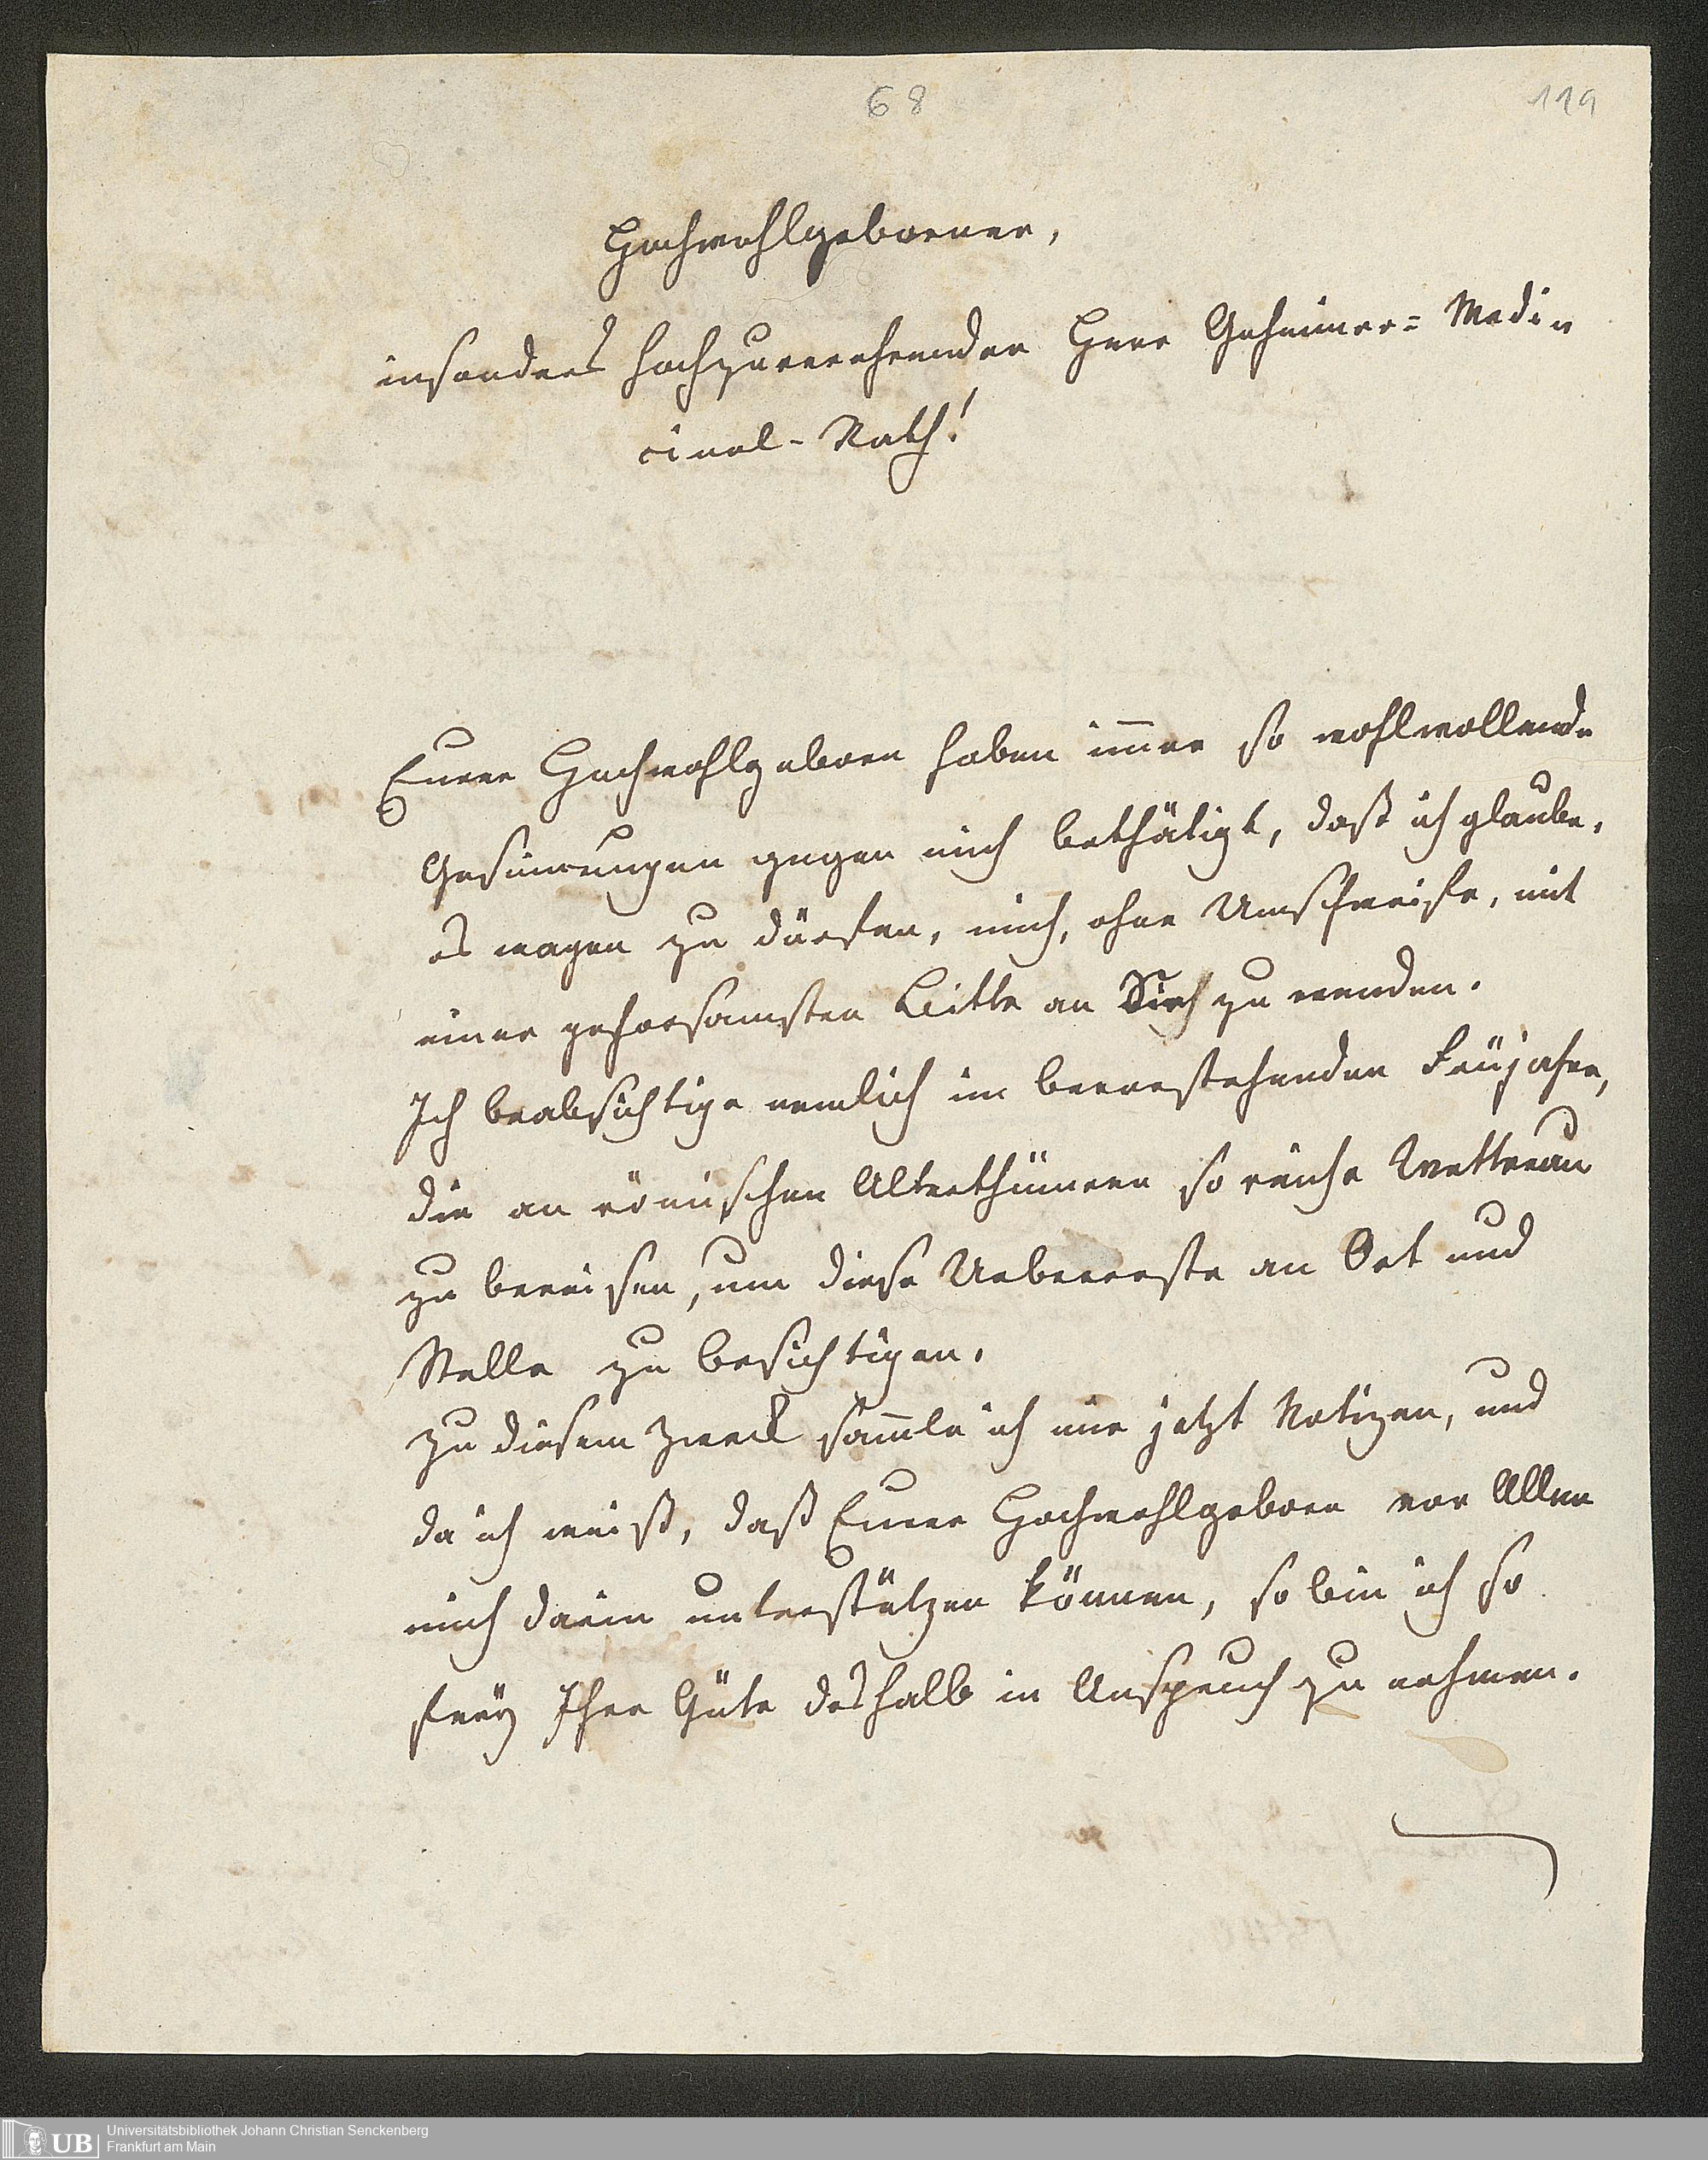 68
119
Hochwohlgeborner,
insonders hochzuverehrender Herr Geheimer= Medi=
cinal-Rath!
Eurer Hochwohlgeboren haben immer so wohlwollende
Gesinnungen gegen mich bethätigt, daß ich glaube,
es wagen zu dürfen, mich, ohne Umschweife, mit
einer gehorsamsten Bitte an Sie zu wenden.
Ich beabsichtige nemlich im bevorstehenden Früjahre,
die an römischen Alterthümern so reiche Wetterau
zu bereisen, um diese Ueberreste an Ort und
Stelle zu besichtigen.
Zu diesem Zweck sammle ich mir jetzt Notizen, und
da ich weiß, daß Eurer Hochwohlgeboren vor Allen
mich darin unterstützen können, so bin ich so
frey Ihre Güte deshalb in Anspruch zu nehmen.
UB
Universitätsbibliothek Johann Christian Senckenberg
Frankfurt am Main